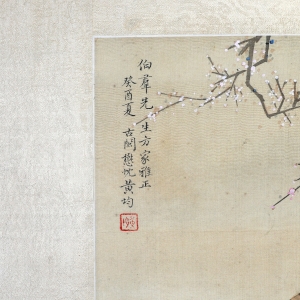 伯羣先生方家雅正
癸酉夏 古閩懋忱黄均